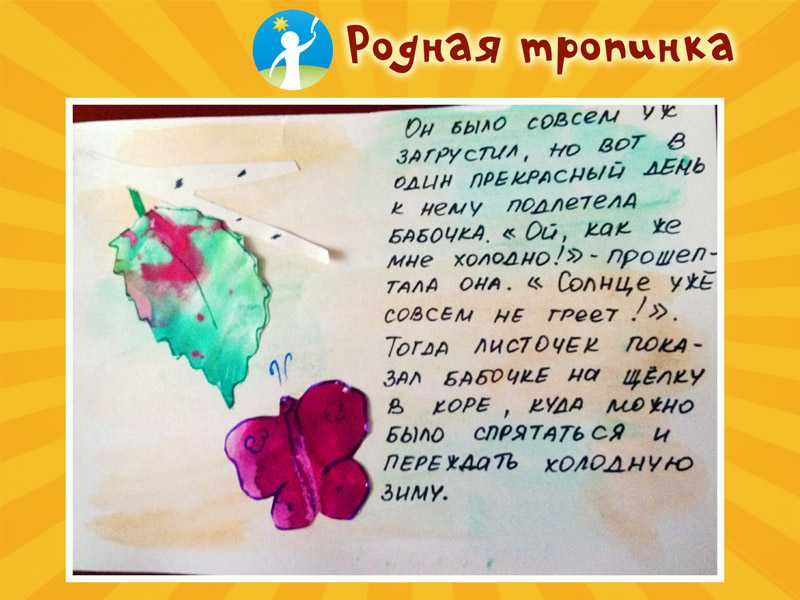 Родная тропинка
Он было совсем уж
загрустил, но вот в
один прекрасный день
к нему подлетела
бабочка. «Ой, как же
мне холодно!» - прошеп-
тала она. « Солнце уже
совсем не греет!».
Тогда листочек пока-
зал бабочке на щёлку
в коре, куда можно
было спрятаться и
переждать холодную
зиму.